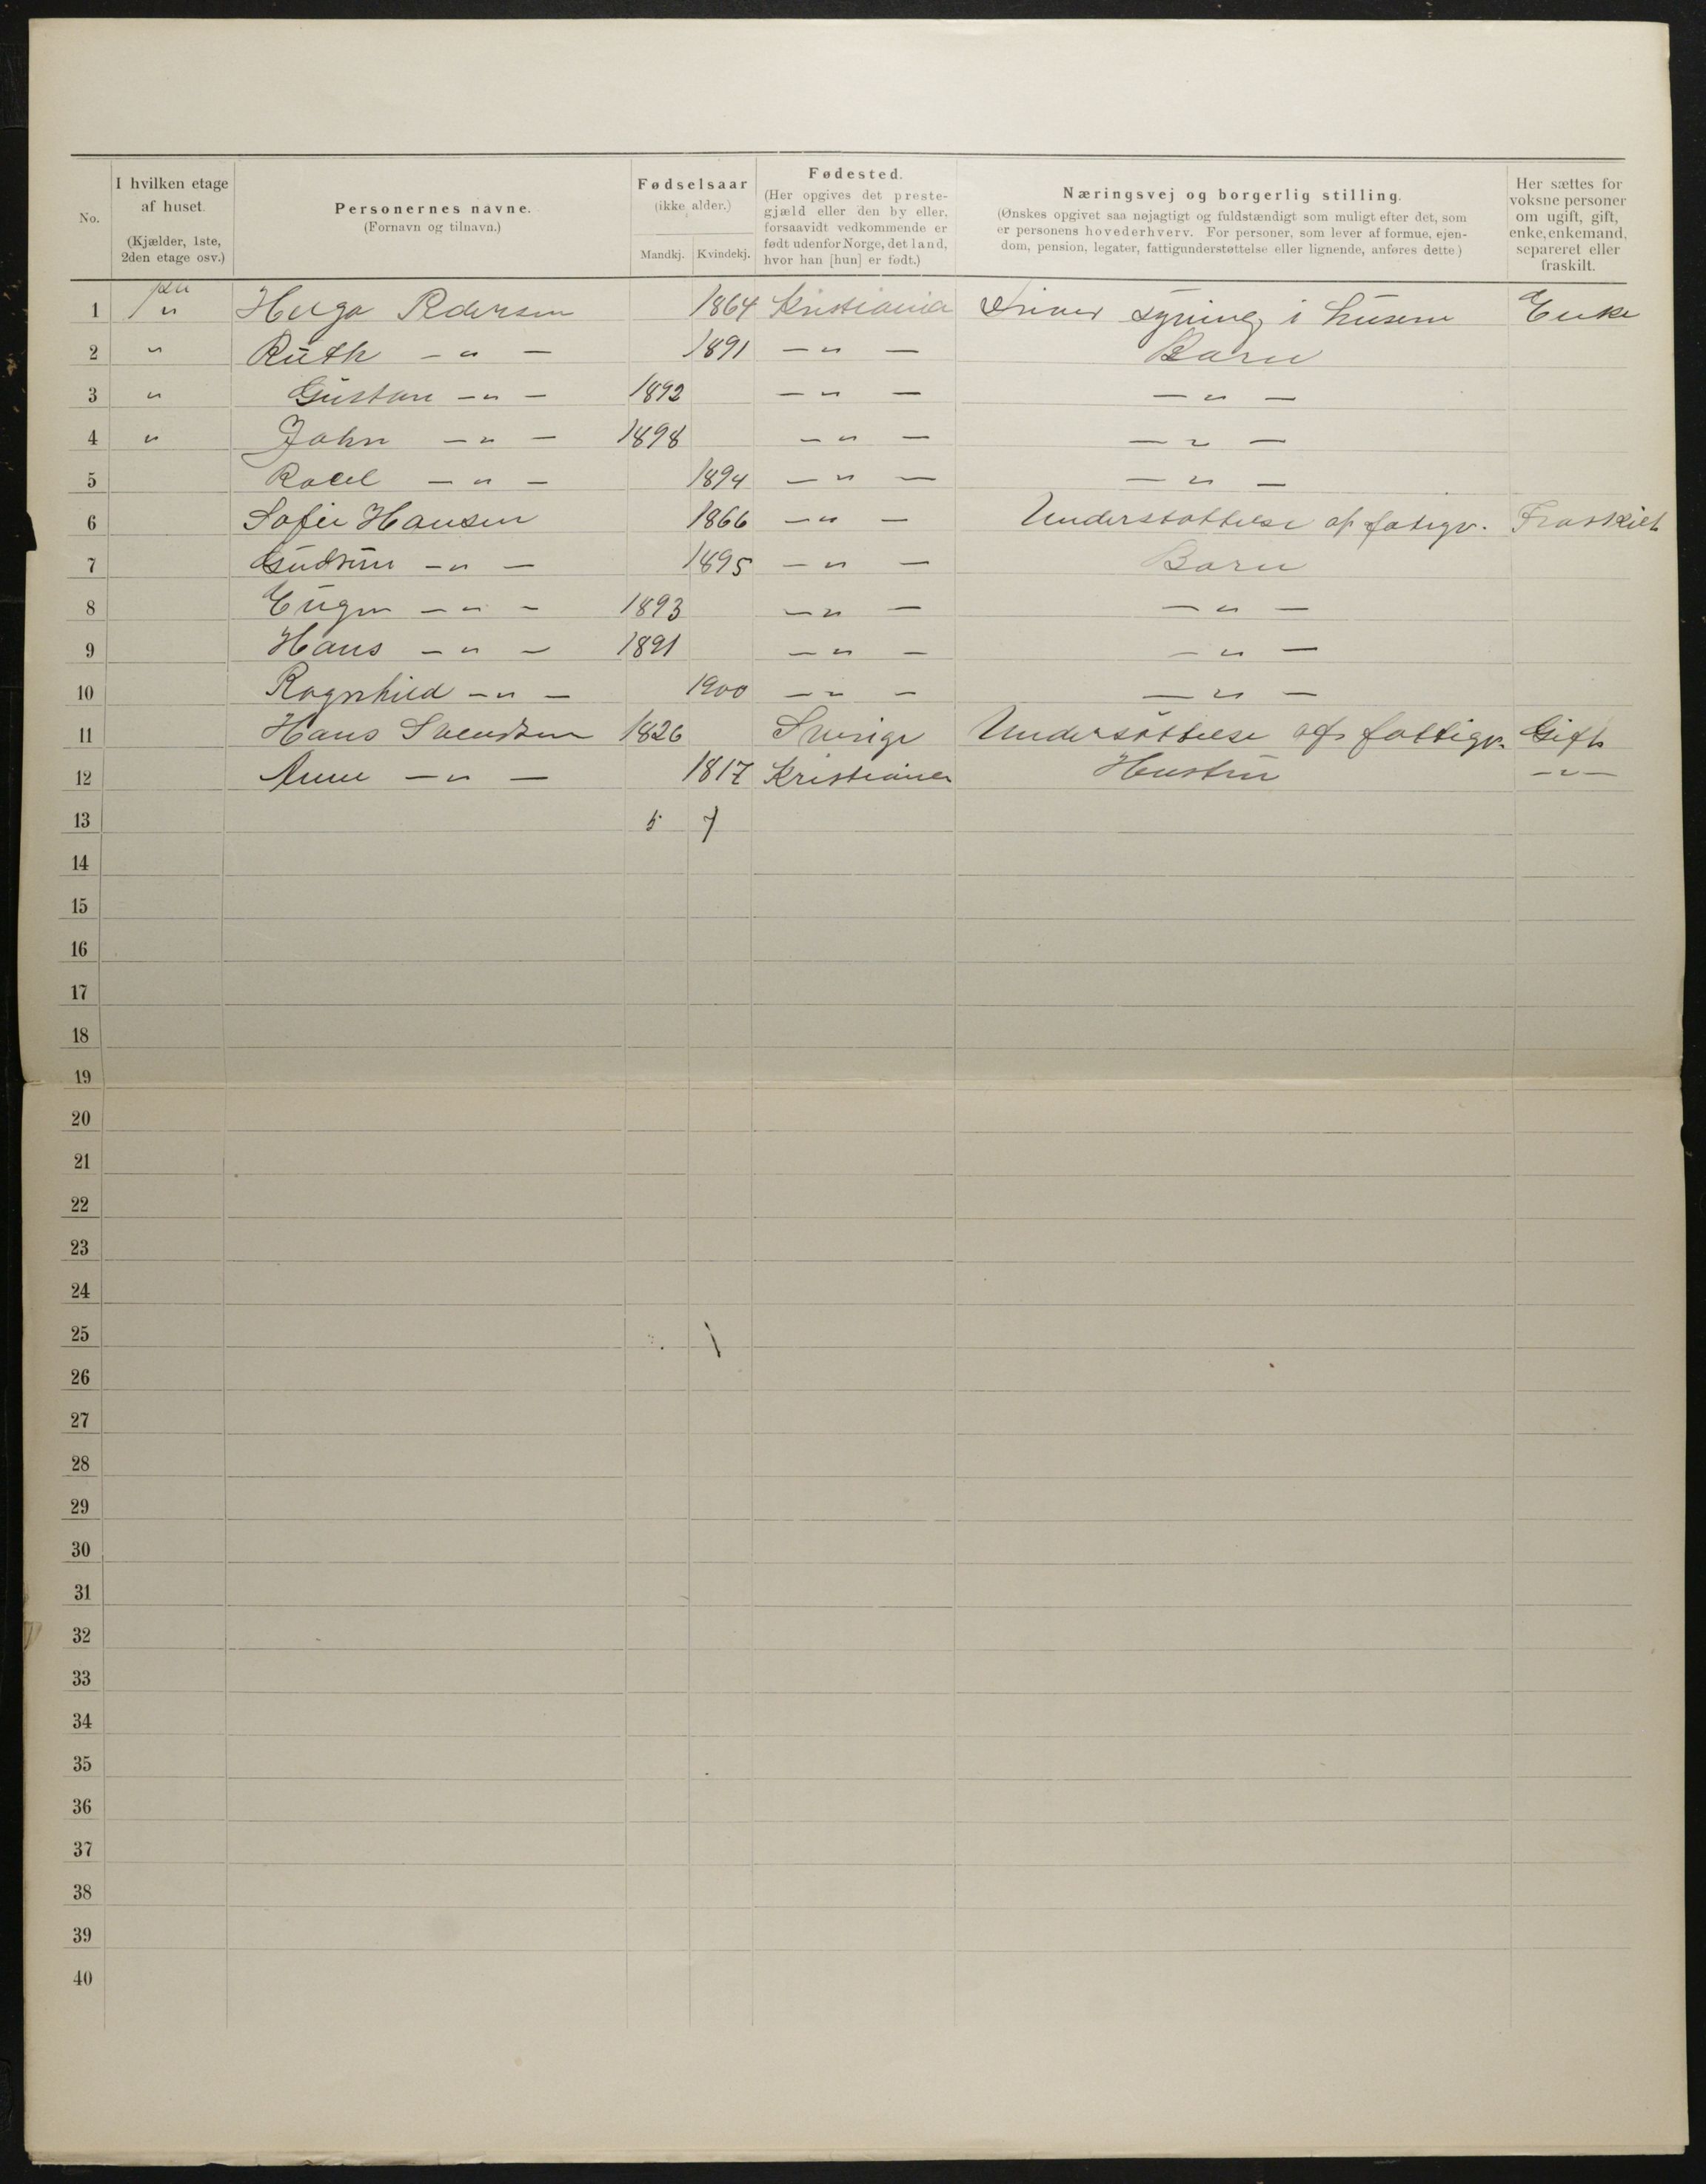 No.
I hvilken etage af huset. (Kjælder, 1ste, 2den etage osv.)
Personernes navne. (Fornavn og tilnavn.)
Fødselsaar (ikke alder.)
Mandkj. Kvindekj.
Fødested. (Her opgives det prestegjæld eller den by eller, forsaavidt vedkommende er født udenfor Norge, det land, hvor han [hun] er født.)
Næringsvej og borgerlig stilling. (Ønskes opgivet saa nøjagtigt og fuldstændigt som muligt efter det, som er personens hovederhverv. For personer, som lever af formue, ejendom, pension, legater, fattigunderstøttelse eller lignende, anføres dette)
Her sættes for voksne personer om ugift, gift, enke, enkemand, separeret eller fraskilt.
1 " Helga Pedersen 1864 Kristiania Driver syning i husene Enke
2 " Ruth — " — 1891 — " — Barn
3 " Gustav — " — 1892 — " — — " —
4 " John — " — 1898 — " — — " —
5 — " — 1894 — " — — " —
6 Sofie Hansen 1866 — " — Understøttelse af fatigv. Fraskilt
7 Gudrun — " — 1895 — " — Barn
8 Eugen — " — 1893 — " — — " —
9 Hans — " — 1891 — " — — " —
10 Ragnhild — " — 1900 — " — — " —
11 Hans Svendsen 1826 Sverige Undersøttelse af fattigv. Gift
12 Anne — " — 1817 Kristiania Hustru — " —
13 5 7
14
15
16
17
18
19
20
21
22
23
24
25
26
27
28
29
30
31
32
33
34
35
36
37
38
39
40